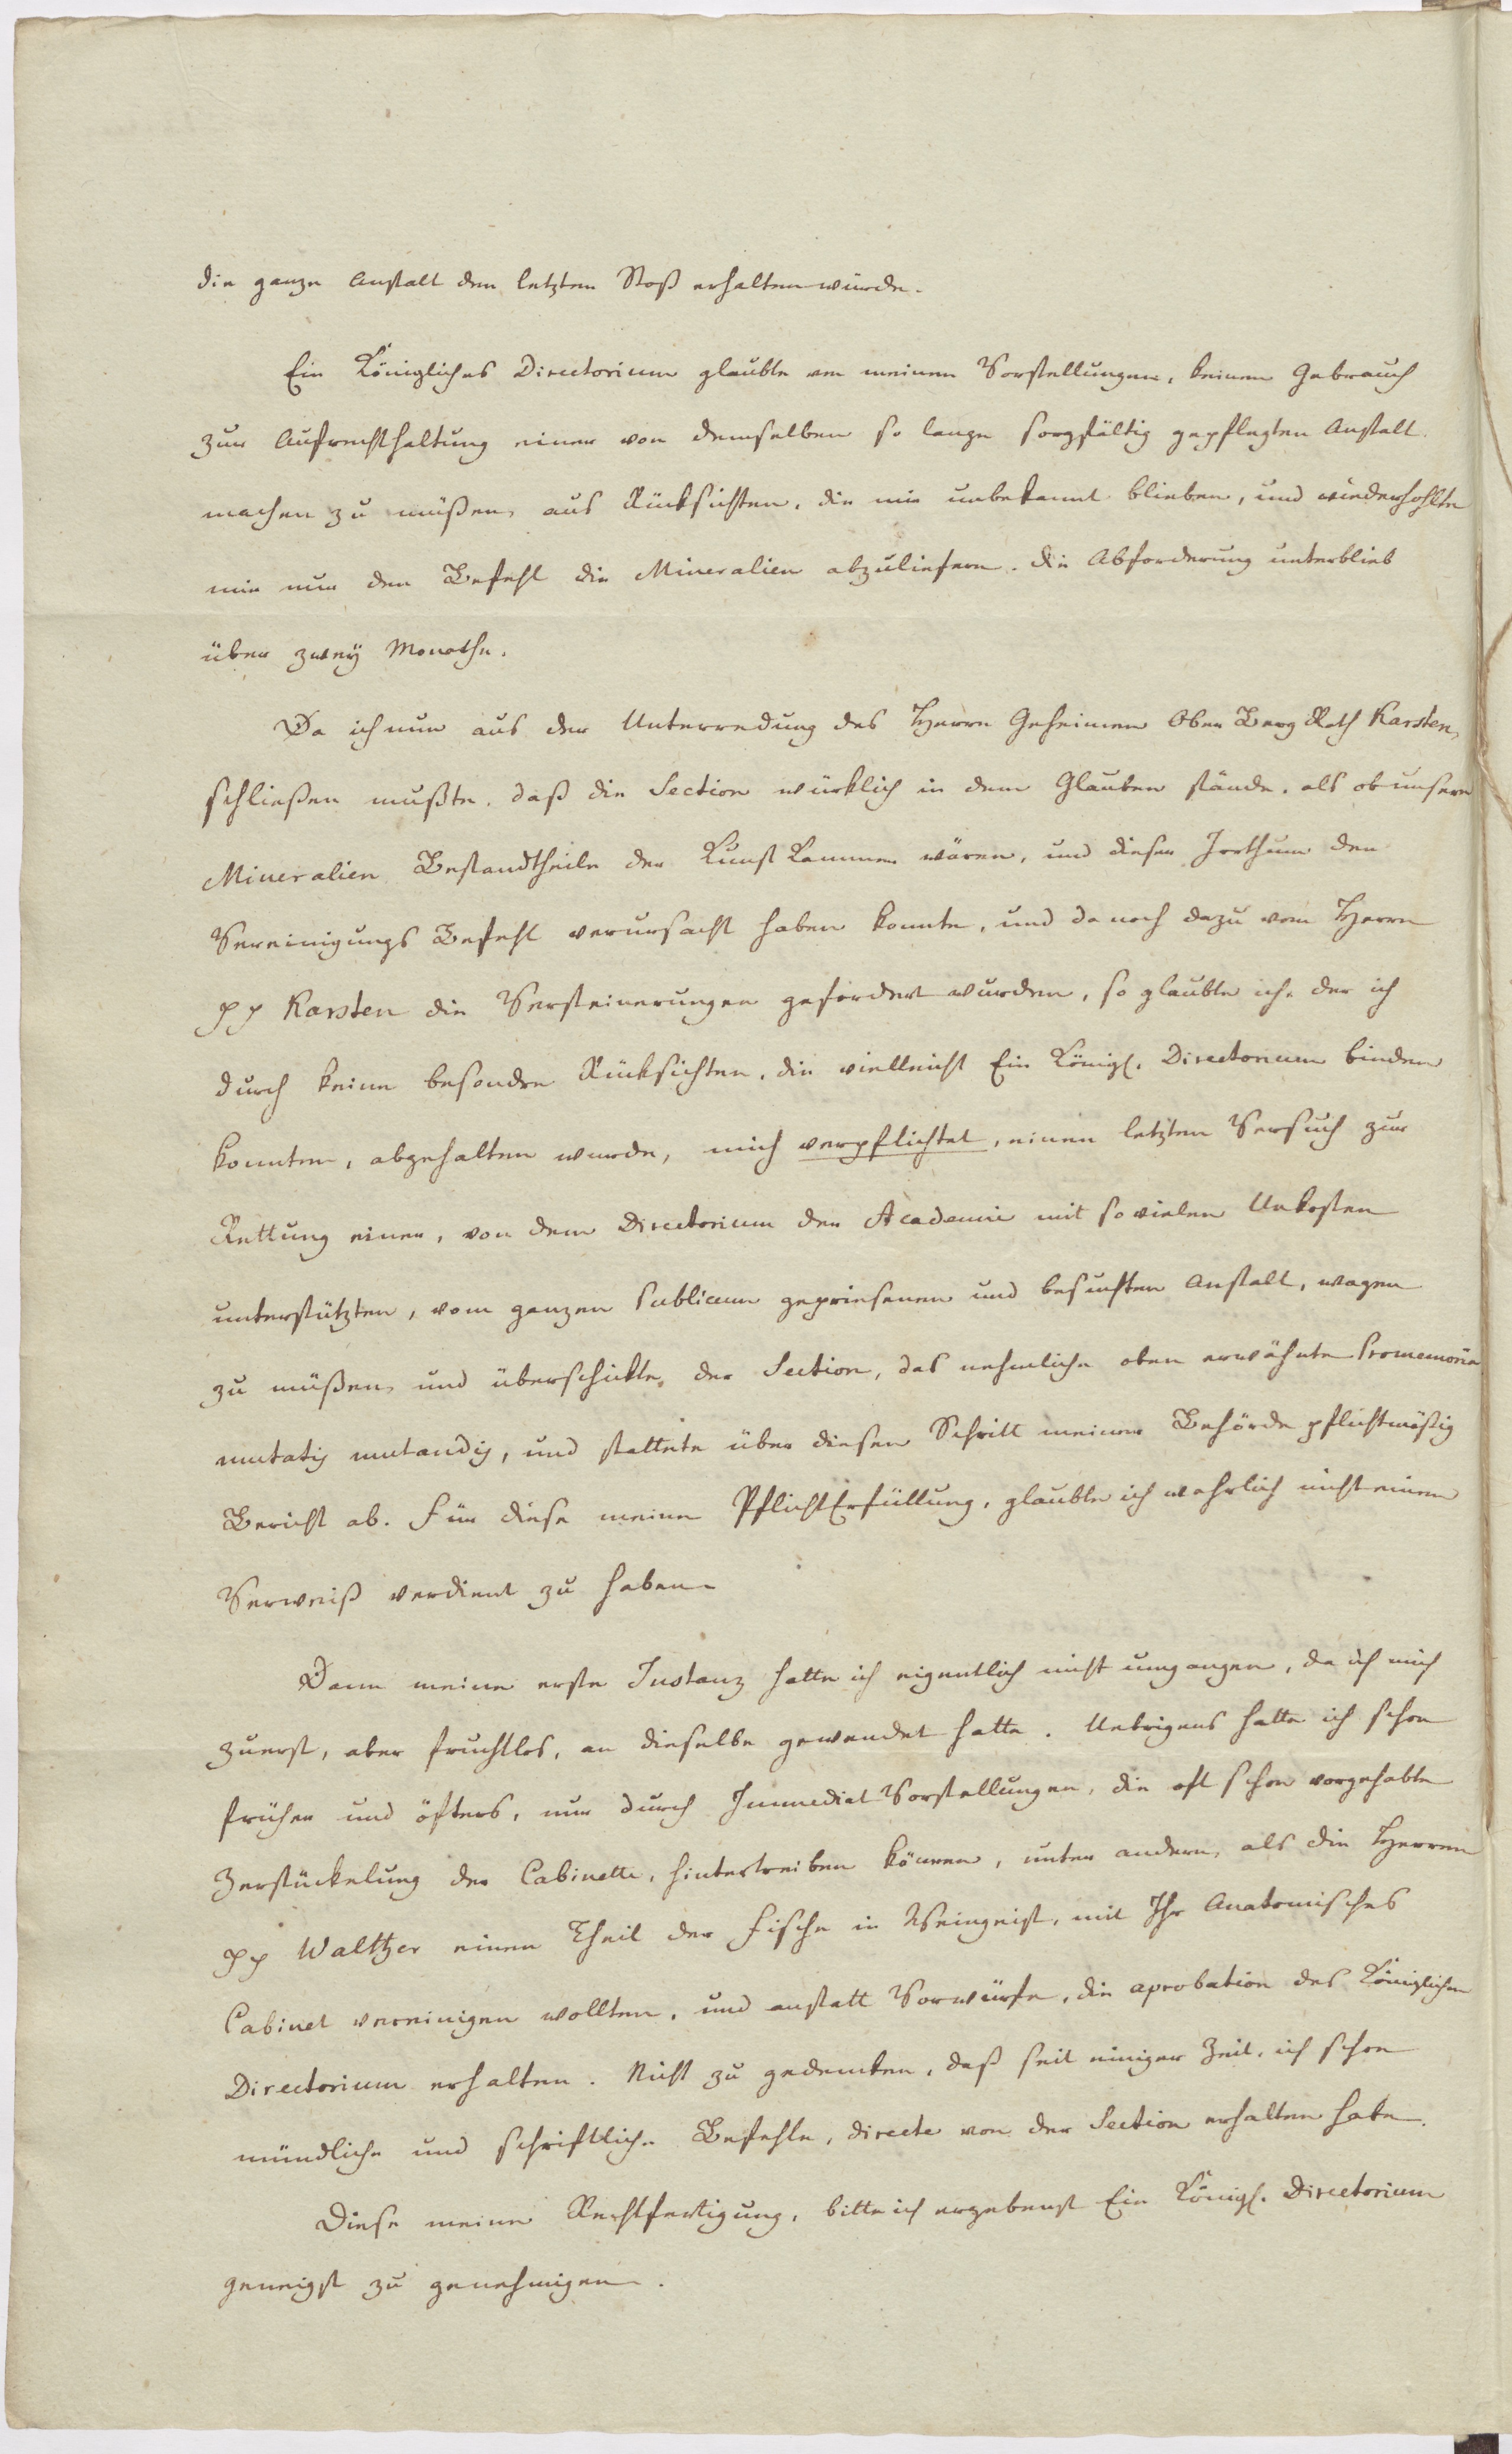 die ganze Anstalt den letzten Stoß erhalten würde.
Ein Königliches Directorium glaubte von meinen Vorstellungen, keinen Gebrauch
zur Aufrechthaltung einer von demselben so lange sorgfältig gepflegten Anstalt
machen zu müßen, aus Rücksichten, die mir unbekannt blieben, und wiederhohlte
mir nur den Befehl die Mineralien abzuliefern. Die Abforderung unterblieb
über zwey Monathe.
Da ich nun aus der Unterredung des Herrn Geheimen Ober Berg Rath Karsten,
schließen mußte, daß die Section würklich in dem Glauben stände, als ob unsere
Mineralien Bestandtheile der Kunst Kammer wären, und dieser Irrthum den
Vereinigungs Befehl verursacht haben konnte, und da noch dazu vom Herrn
pp Karsten die Versteinerungen gefordert wurden, so glaubte ich, der ich
durch keine besondre Rücksichten, die vielleicht Ein Königl. Directorium binden
konnten, abgehalten wurde, mich verpflichtet, einen letzten Versuch zur
Rettung einer, von dem Directorium der Academie mit so vielen Unkosten
unterstützten, vom ganzen Publicum gepriesenen und besuchten Anstalt, wagen
zu müßen, und überschickte, der Section, das nehmliche oben erwähnte Promemoria
mutatis mutandis, und stattete über diesen Schritt meiner Behörde pflichtmäßig
Bericht ab. Für diese meine PflichtErfüllung, glaubte ich wahrlich nicht einen
Verweiß verdient zu haben.
Denn meine erste Instanz hatte ich eigentlich nicht umgangen, da ich mich
zuerst, aber fruchtlos, an dieselbe gewendet hatte. Uebrigens hatte ich schon
früher und öfters, nur durch Immediat Vorstellungen, die oft schon vorgehabte
Zerstückelung der Cabinette, hintertreiben können, unter andern, als die Herren
pp Walther einen Theil der Fische in Weingeist, mit Ihr Anatomisches
Cabinet vereinigen wollten, und anstatt Vorwürfe, die aprobation des Königlichen
Directorium erhalten. Nicht zu gedenken, daß seit einiger Zeit, ich schon
mündliche und schriftliche Befehle, directe von der Section erhalten habe.
Diese meine Rechtfertigung, bitte ich ergebenst Ein Königl. Directorium
geneigst zu genehmigen.